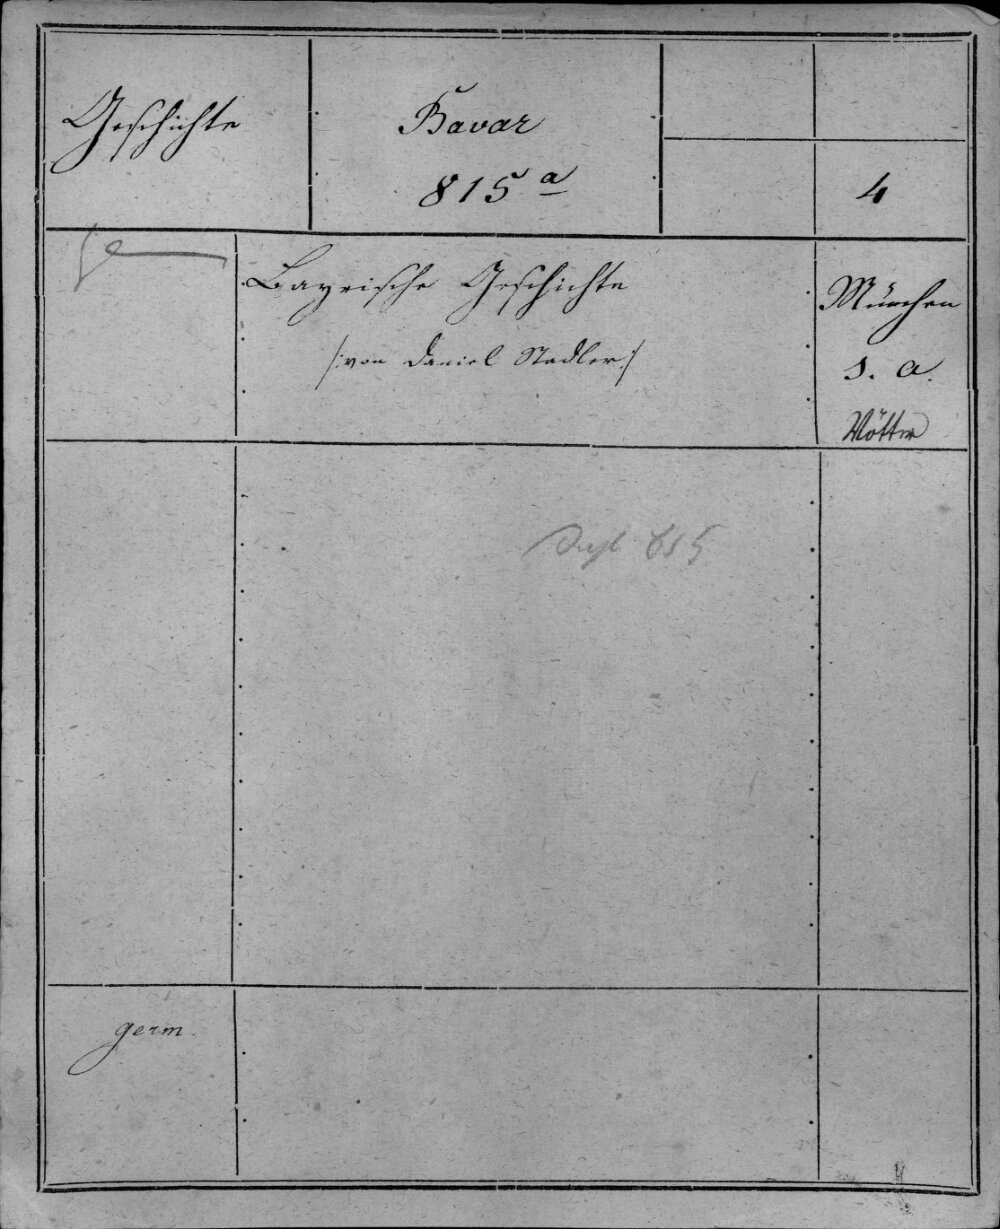 Geschichte
Bavar
815 a
4
Bayrische Geschichte
/: von Daniel Stadler :/
München
s. a.
Vötter
germ.